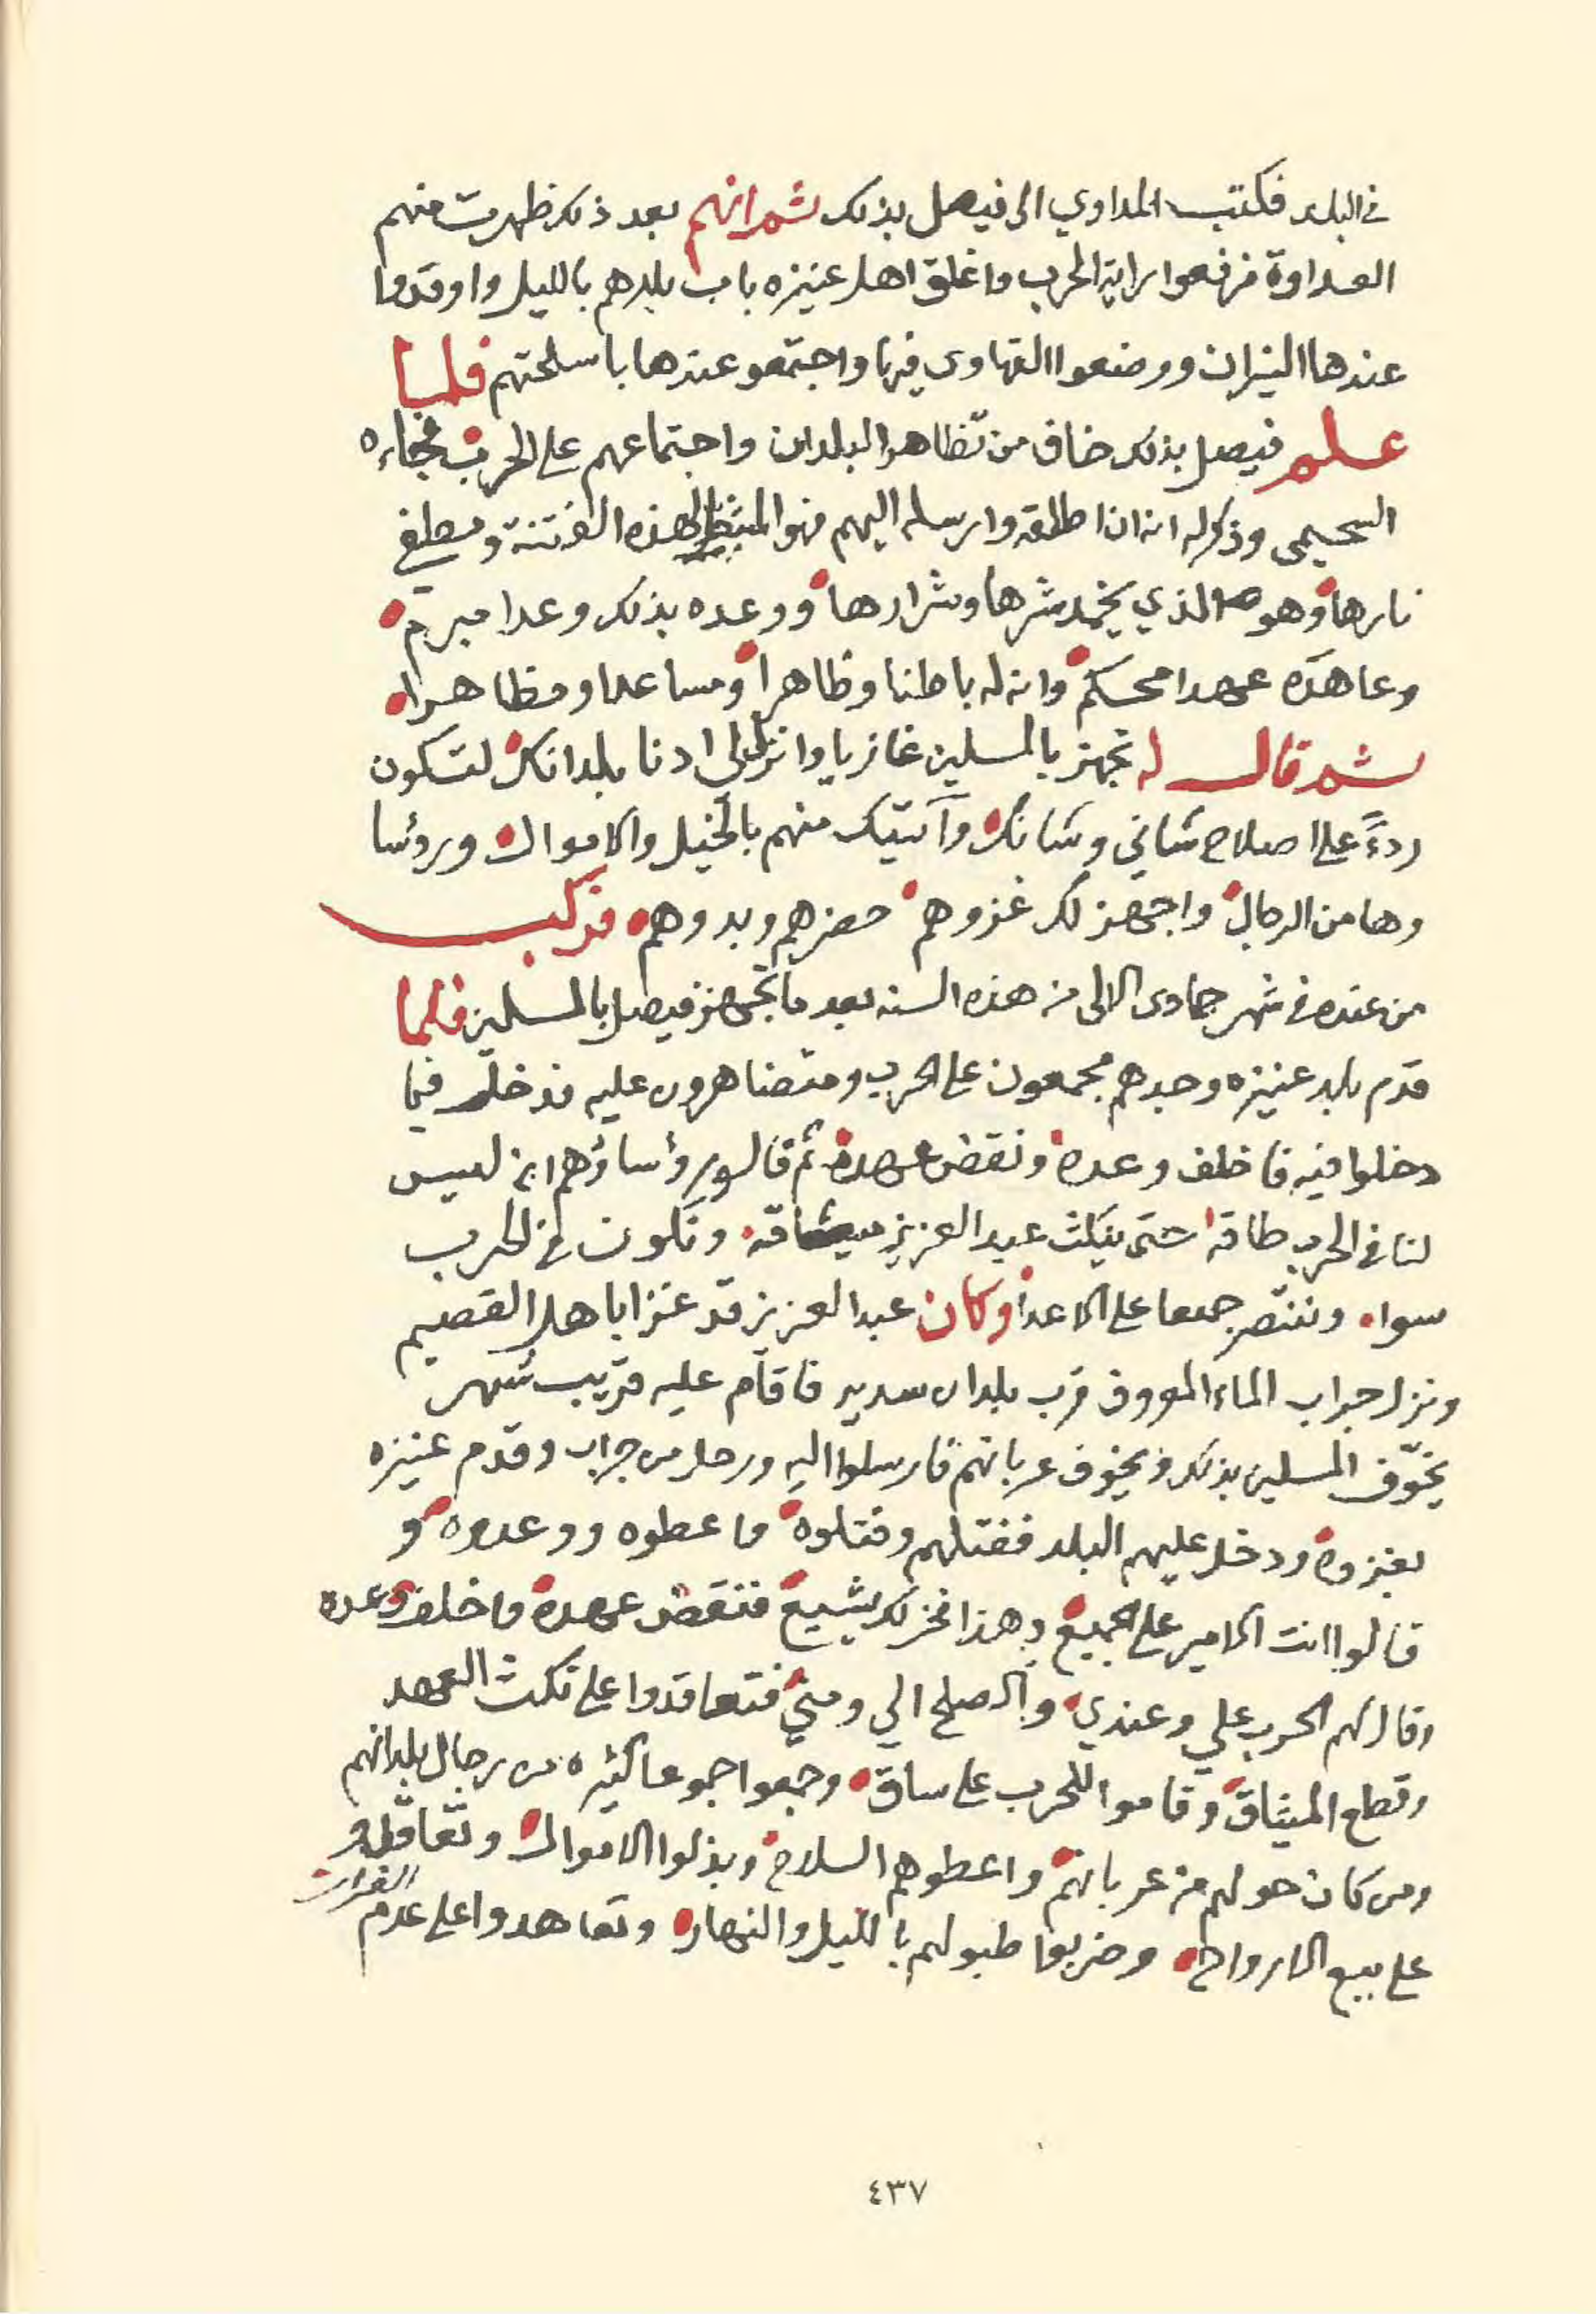 في البلد فكتب المداوي الى فيصل بذلك ثم انهم بعد ذلك ظهرت منهم
العداوة فرفعوا راية الحرب واغلق اهل عنيزه باب بلدهم بالليل واوقدوا
عندها النيران ووضعوا القهاوي فيها واجتمعو عندها باسلحتهم فلما
علم فيصل بذلك خاف من تظاهر البلدان واجتماعهم على الحرب فجاءه
السحيمي وذكر له انه اذا اطلقه وارسله اليهم فهو المثبط لهذه الفتنة ومطفي
نارها وهو الذي يخمد شرها وشرارها ووعده بذلك وعدا مبرم
وعاهده عهدا محكم وانه له باطنا وظاهرا ومساعدا ومظاهرا
ثم قال له تجهز بالمسلمين غازيا وانزل الى ادنا بلدانك لتكون
ردءً على اصلاح شاني وشانك وآتيك منهم بالخيل والاموال ورؤسا
وها من الرجال واجهز لك غزوهم حضرهم وبدوهم فركب
من عنده في شهر جمادى الاولى من هذه السنه بعد ما تجهز فيصل بالمسلمين فلما
قدم بلد عنيزه وجدهم مجمعون على الحرب ومتضاهرون عليه فدخل فيما
دخلوا فيه فاخلف وعده ونقض عهده ثم قالو رؤساؤهم انه ليس
لنا في الحرب طاقه حتى ينكث عبد العزيز ميثاقه ونكون في الحرب
سواء وننتصر جمعا على الاعدا وكان عبد العزيز قد غزا باهل القصيم
ونزل جراب الماء المعروف قرب بلدان سدير فاقام عليه قريب شهر
يخوّف المسلمين بذلك ويخوف عربانهم فارسلوا اليه ورحل من جراب وقدم عنيزه
بغزوه ودخل عليهم البلد ففتلهم وفتلوه واعطوه ووعدوه و
قالوا انت الامير على الجميع وهذا نحن لك شيع فنقض عهده واخلف وعده
وقال لهم الحرب علي وعندي والصلح الي ومني فتعاقدوا على نكث العهد
وقطع الميثاق وقاموا للحرب على ساق وجمعوا جموعا كثيره من رجال بلدانهم
ومن كان حولهم من عربانهم واعطوهم السلاح وبذلوا الاموال وتعاقدوا
على بيع الارواح وضربوا طبولهم بالليل والنهار وتعاهدوا على عدم الفرار
٤٣٧